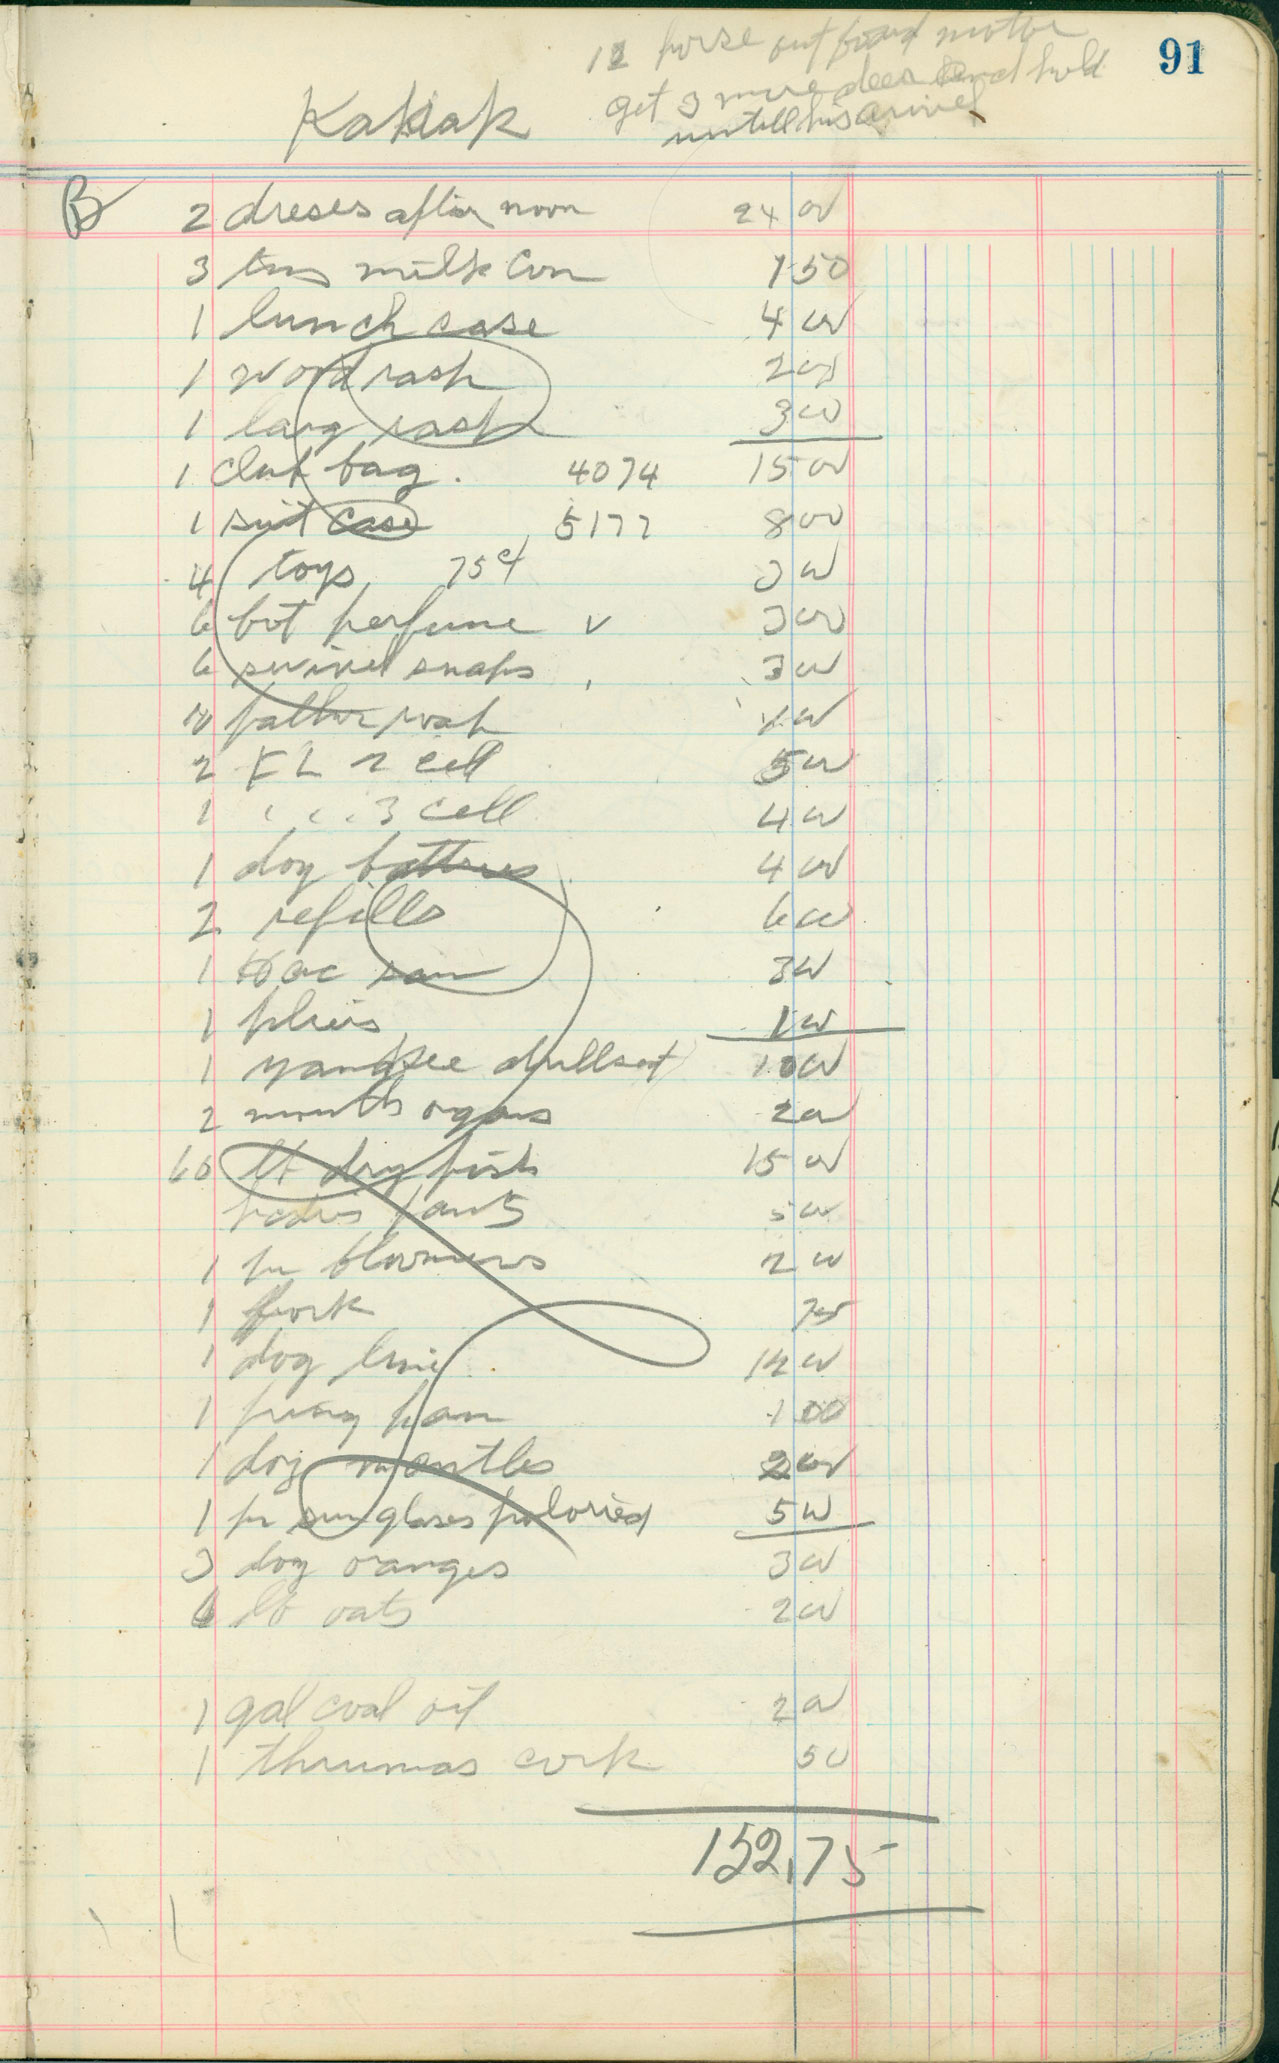 12 horse out board motor
91
get 3 more deer and hold
Kakiak
untill his arivel
B 2 dreses after noon 24 00
3 tns milk Con 1 50
1 lunch case 4 00
1 word rash 2 00
1 larg rash 3 00
1 club bag . 4074 15 00
1 suit case 5177 8 00
4 toys 75¢ 3 00
6 bot perfume v 3 00
6 swivel snaps 3 00
10 rash 1 00
2 FL 2 cell 5 00
1 " " 3 cell 4 00
1 doz batteres 4 00
2 refills 6 00
1 Hac saw 3 00
1 pliers 1 00
1 yankee drill set 10 00
2 mouth organs 2 00
60 lb dry fish 15 00
pants 5 00
1 pr bloomers 2 00
1 fork 75
1 dog line 12 00
1 fring pan 1 00
1 doz mantles 2 00
1 pr sun glases poloried 5 00
3 doz oranges 3 00
6 lb oats 2 00
1 gal coal oil 2 00
1 thrumas cork 50
152.75